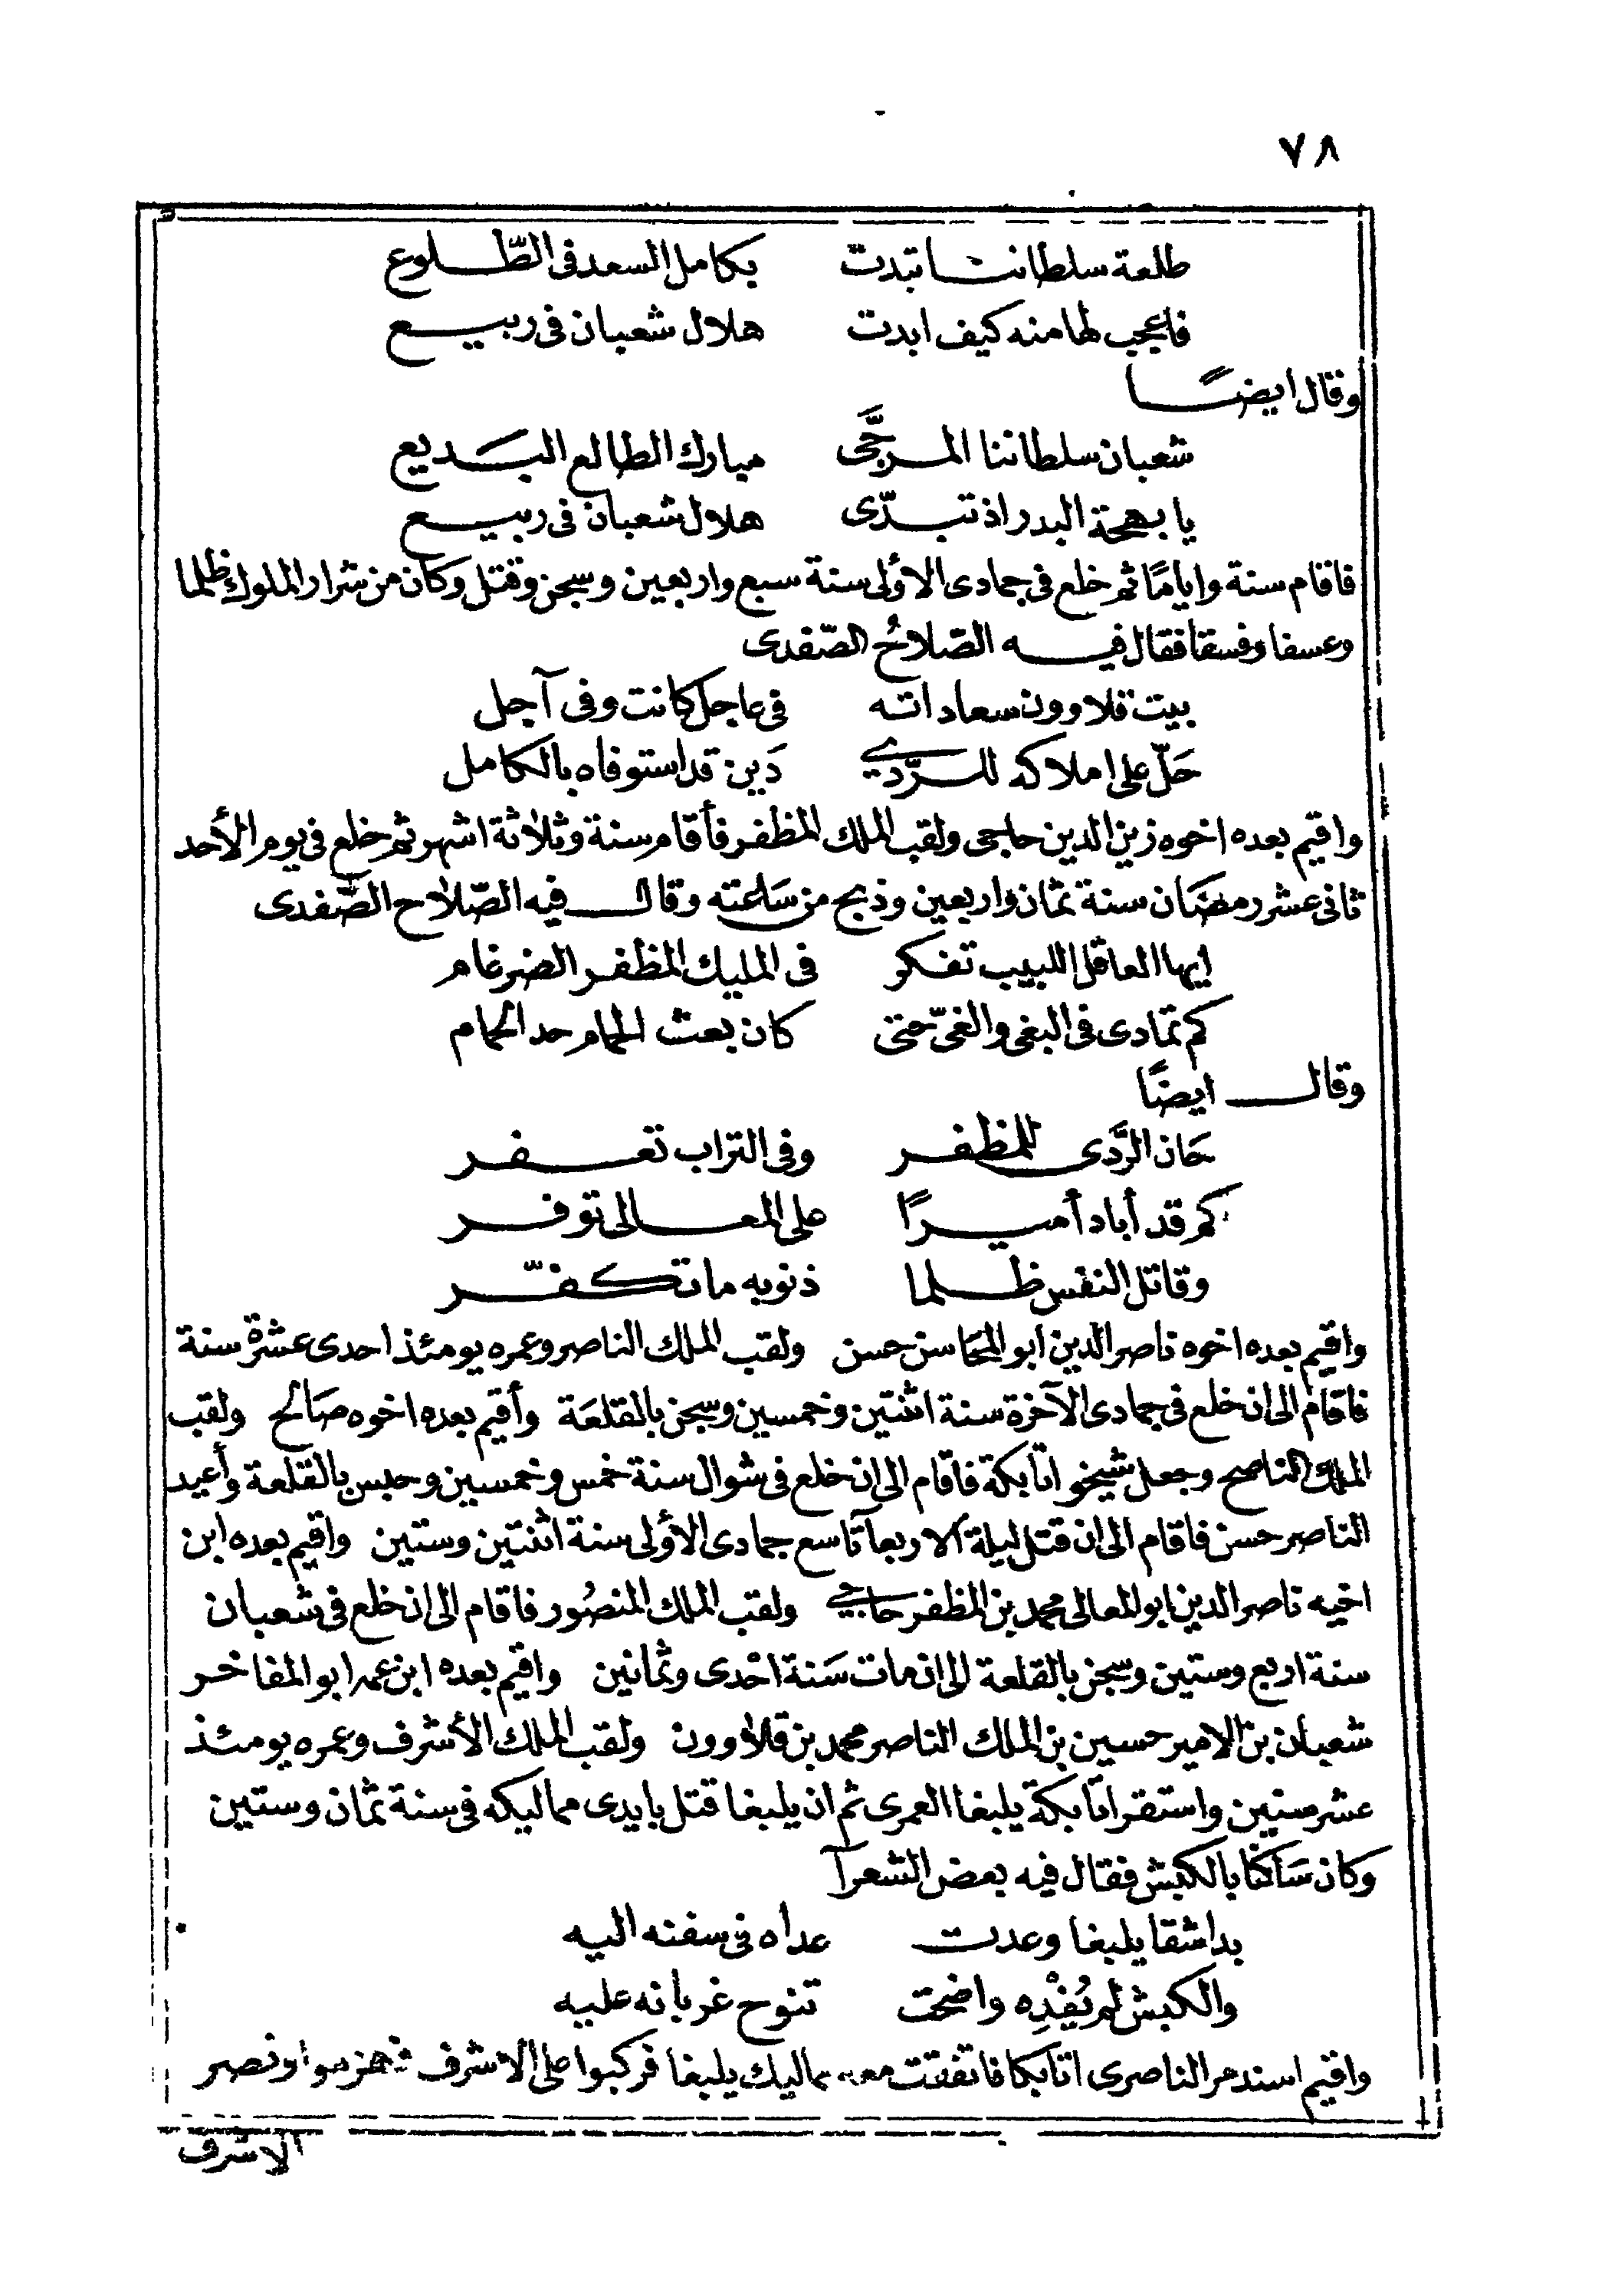 ٧٨
طلعة سلطاننا تبدت بكامل السعد فى الطّلوع
فاعجب لها منه كيف ابدت هلال شعبان فى ربيع
وقال ايضًا
شعبان سلطاننا المرجَّى مبارك الطالع البديع
يا بهجة البدر اذ تبدّى هلال شعبان فى ربيع
فاقام سنة وايامًا ثم خلع فى جمادى الاولى سنة سبع واربعين وسجن وقتل وكان من شرار الملوك ظلما
وعسفا وفسقا فقال فيه الصّلاحُ الصّفدى
بيت قلاوون سعاداته فى عاجل كانت وفى آجل
حَلّ على املاكه للرّدي دَين قد استوفاه بالكامل
واقيم بعده اخوه زين الدين حاجى ولقب الملك المظفر فأقام سنة وثلاثة اشهر ثم خلع فى يوم الأحد
ثانى عشر رمضان سنة ثمان واربعين وذبح من سَاعته وقال فيه الصّلاح الصَّفدى
ايها العاقل اللبيب تفكر فى المليك المظفر الضرغام
كم تمادى فى البغى والغىّ حتى كان بعث الحمام حد الحمام
وقال ايضًا
حَان الرَّدى للمظفر وفى التراب تعفر
كم قد أباد أميرًا على المعالى توفر
وقاتل النفس ظلما ذنوبه ما تكفّر
واقيم بعده اخوه ناصر الدين ابو المحَاسن حسن ولقب الملك الناصر وعمره يومئذ احدى عشرة سنة
فاقام الى ان خلع فى جمادى الآخرة سنة اثنتين وخمسين وسجن بالقلعَة وأقيم بعده اخوه صَالح ولقب
الملك الناصح وجعل شيخو اتابكة فاقام الى ان خلع فى شوال سنة خمس وخمسين وحبس بالقلعة وأعيد
الناصر حسن فاقام الى ان قتل ليلة الاربعآ تاسع جمادى الأولى سنة اثنتين وستين واقيم بعده ابن
اخيه ناصر الدين ابو المعالى محمد بن المظفر حاجي ولقب الملك المنصُور فاقام الى ان خلع فى شعبان
سنة اربع وستين وسجن بالقلعة الى ان مات سَنة احْدى وثمانين واقيم بعده ابن عمه ابو المفاخر
شعبان بن الامير حسين بن الملك الناصر محمد بن قلاوون ولقب الملك الأشرف وعمره يومئذ
عشر سنين واستقر اتابكة يلبغا العمرى ثم ان يلبغا قتل بايدى مماليكه فى سنة ثمان وستين
وكان سَاكنا بالكبش فقال فيه بعض الشعرآ
بدا شقا يلبغا وعدت عداه فى سفنه اليه
والكبش لم يُفْدِه واضحت تنوح غربانه عليه
واقيم اسندمر الناصرى اتابكا فاتفقت معه مماليك يلبغا فركبوا على الاشرف فهزموا ونصر
الاشرف